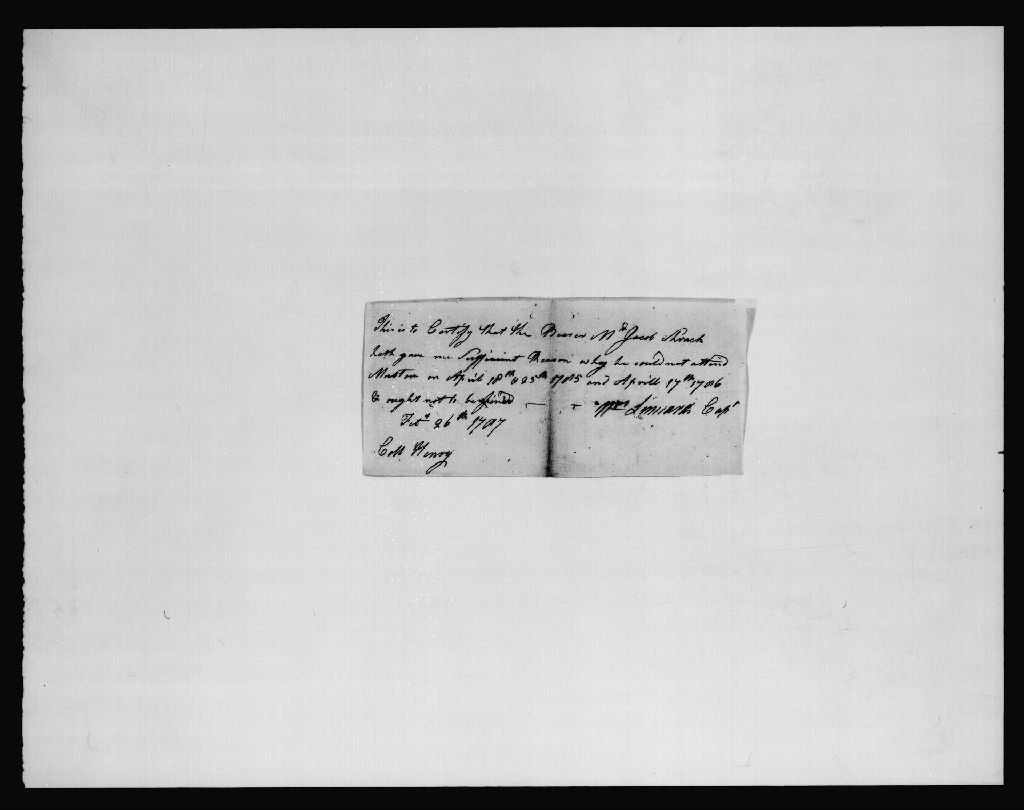 This is to Certify that the Bearer Mr Jacob Shrack
hath gave me Sufficient Reason why he could not attend
Muster on April 18th & 25th 1785 and Aprill 17th 1786
& ought not to be fined
Wm Capt
Feby 26th 1787
Coll Henry